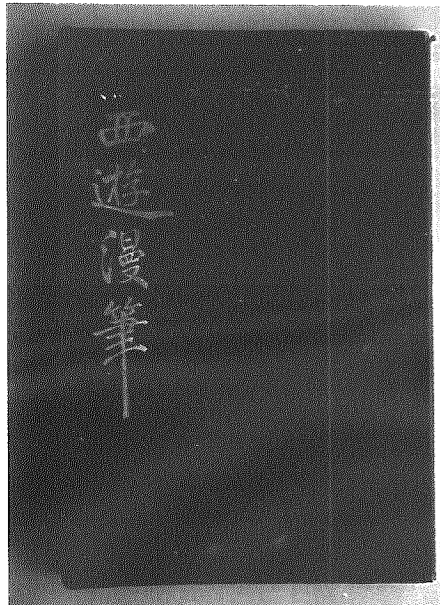 西遊漫筆